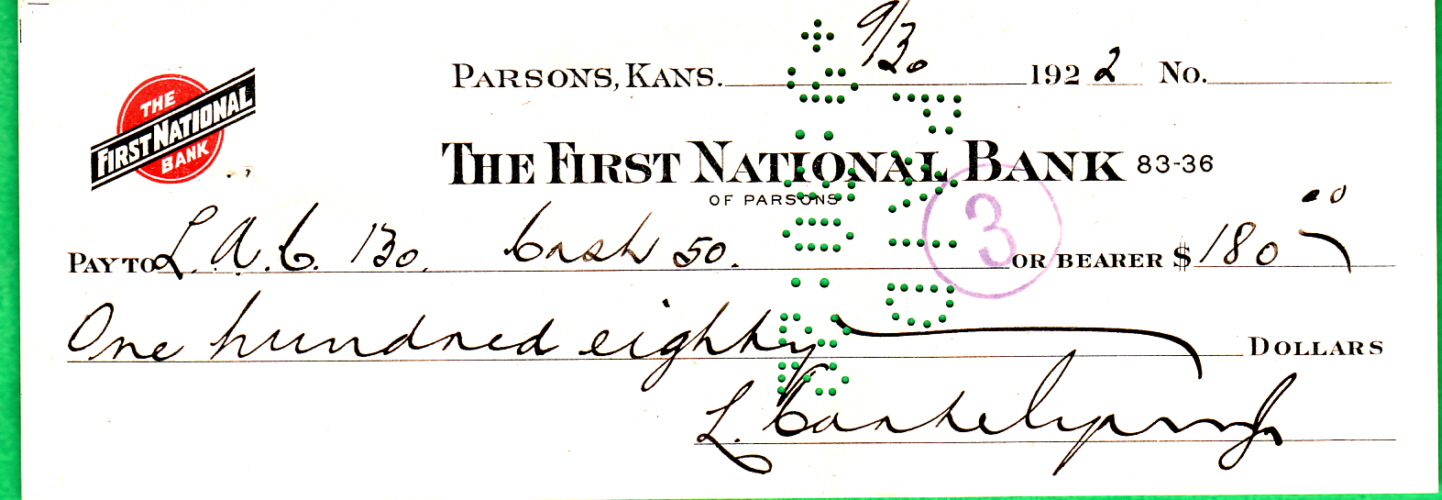 THE
FIRST NATIONAL
BANK
PARSONS, KANS. 9/30 1922 No.
THE FIRST NATIONAL BANK 83-36
OF PARSONS
3
PAY TO L. A. C. 130. Cash 50. OR BEARER $180 00
One hundred eighty DOLLARS
PAID
L.